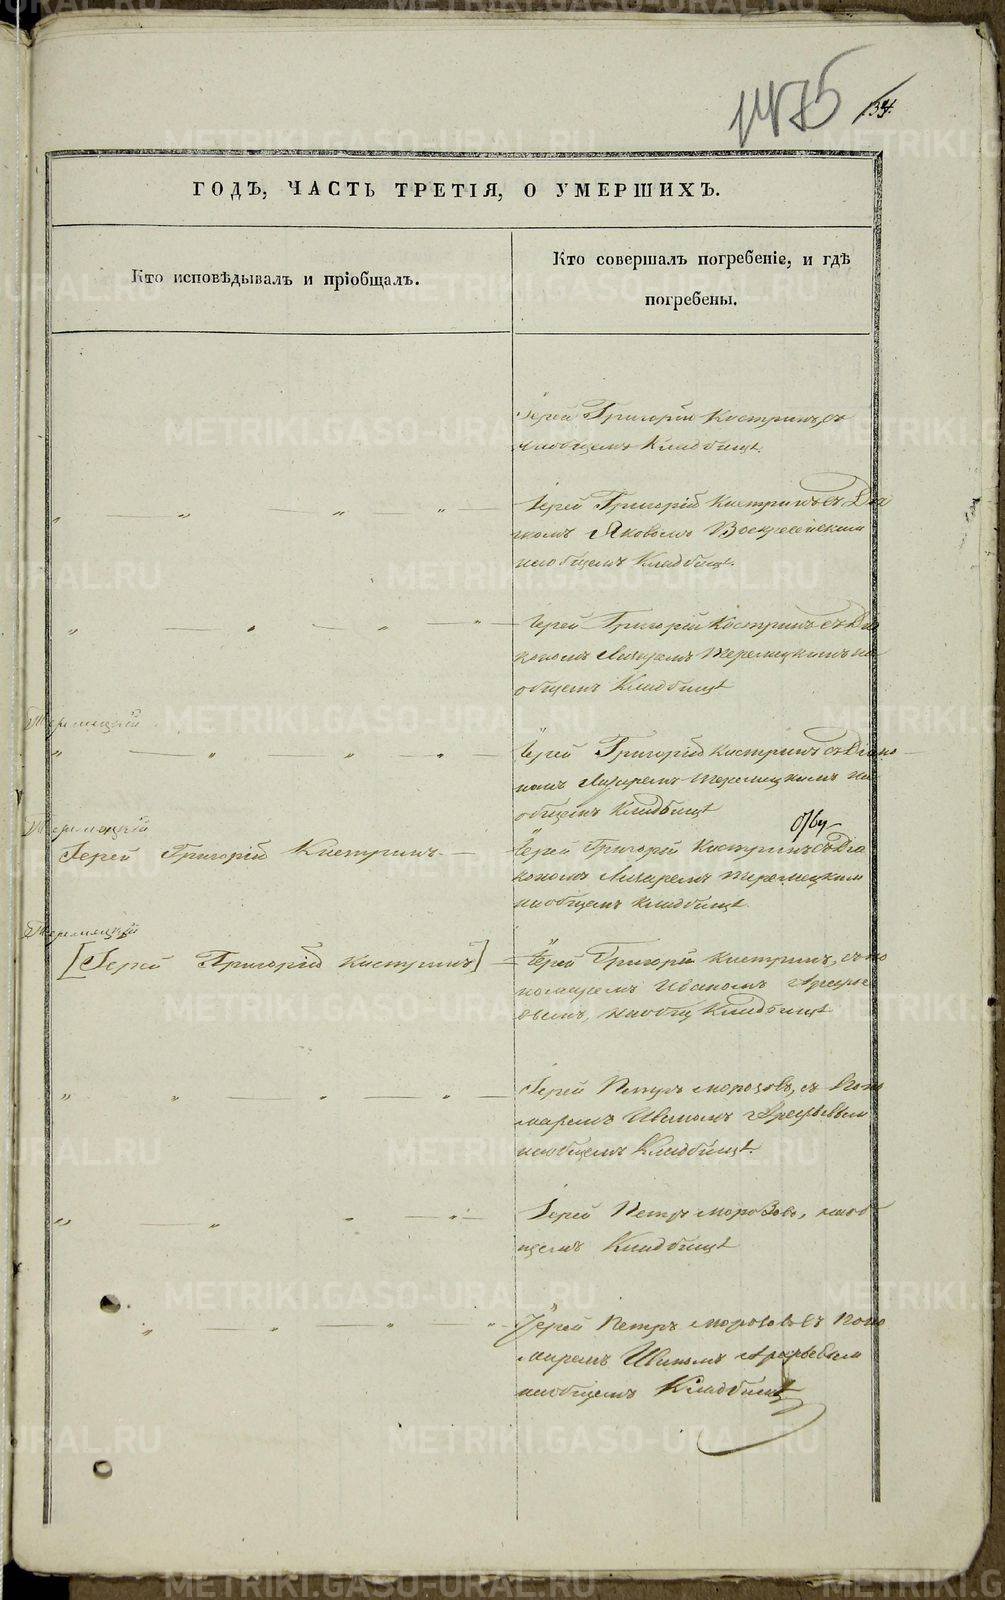 1475
ГОДЪ, ЧАСТЬ ТРЕТІЯ, О УМЕРШИХЪ.
Кто исповѣдывалъ и пріобщалъ.
Кто совершалъ погребеніе, и гдѣ
погребены.
Іерей Григорій Костринъ, съ
наобщемъ Кладбищѣ.
Іерей Григорій Костринъ съ Дья
комъ Яковомъ Воскресенскимъ
наобщемъ Кладбищѣ.
Іерей Григорій Костринъ съ Діа
кономъ Лазаремъ на
общемъ Кладбищѣ
Іерей Григорій Костринъ съ Діако
номъ Лазаремъ на
общемъ Кладбищѣ
Іерей Григорій Костринъ
Іерей Григорій Костринъ съ Діа
кономъ Лазаремъ
наобщемъ кладбищѣ.
[Іерей Григорій Костринъ]
Іерей Григорій Костринъ, съ по
номаремъ Иваномъ Арефье
вымъ, наобщ Кладбищѣ
Іерей Петръ Морозовъ, съ Поно
маремъ Иваномъ Арефьевым
наобщемъ Кладбищѣ.
Іерей Петръ Морозовъ, наоб
щемъ Кладбищѣ
Іерей Петръ Морозовъ съ Поно
маремъ Иваномъ Арефьевым
наобщемъ Кладбищѣ
METRIKI.GASO-URAL.RU